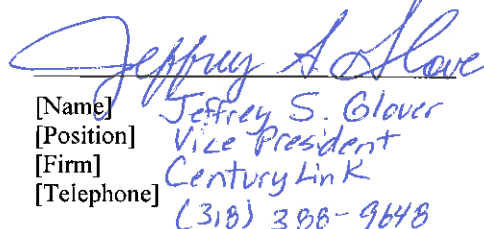 Jeffrey S Glove
[Name] Jeffrey S. Glover
[Position] Vice President
[Firm] CenturyLink
[Telephone] (318) 388-9648